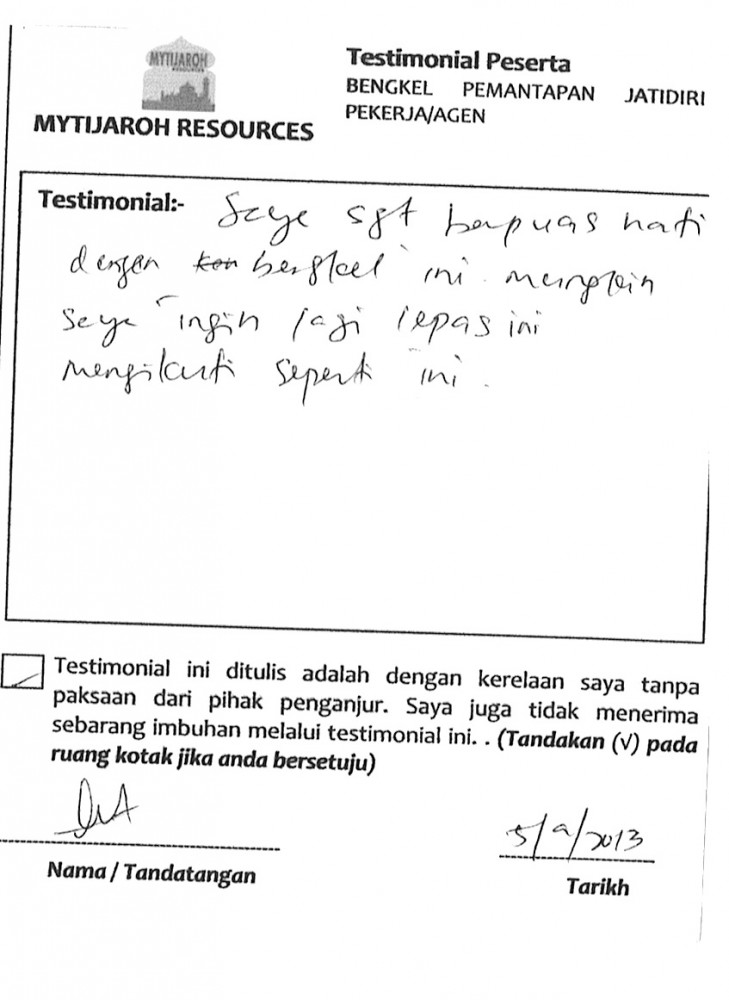 MYTIJAROH
RESOURCES
MYTIJAROH RESOURCES
Testimonial Peserta
BENGKEL PEMANTAPAN JATIDIRI
PEKERJA/AGEN
Testimonial:- Saya sgt berpuas hati
dengan ken bengkel ini. mungkin
Saya ingin lagi lepas ini
mengikuti seperti ini.
Testimonial ini ditulis adalah dengan kerelaan saya tanpa
paksaan dari pihak penganjur. Saya juga tidak menerima
sebarang imbuhan melalui testimonial ini. . (Tandakan (√) pada
ruang kotak jika anda bersetuju)
5/9/2013
Nama / Tandatangan
Tarikh